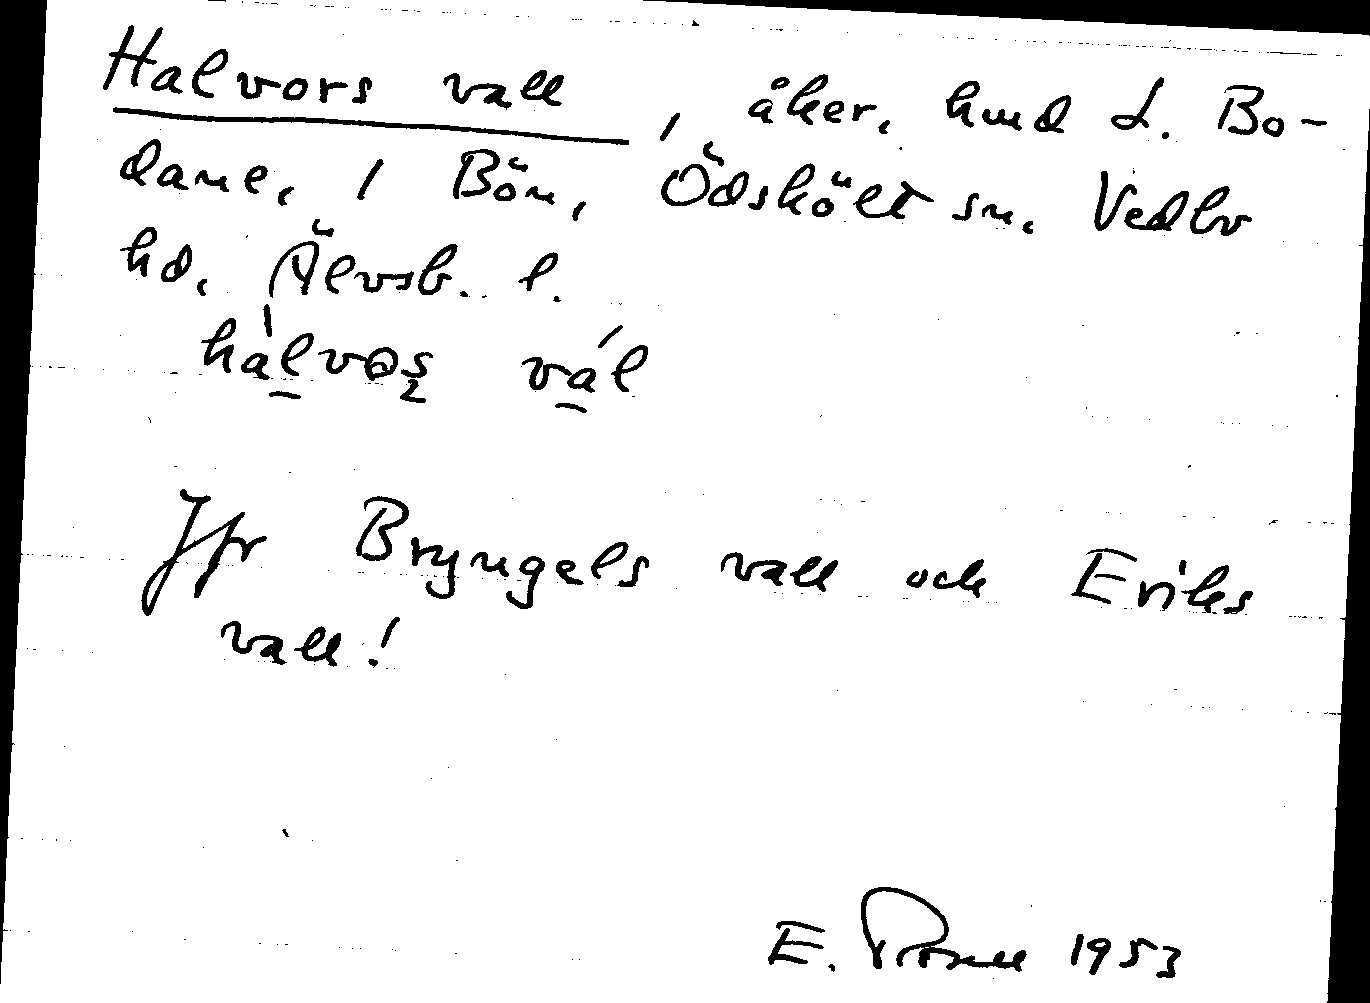 Halvors vall, åker, hmd L. Bo-
dane, 1 Bön, Ödskölt sn. Vedbo
hd. Älvsb. l.
Jfr Bryngels vall och Eriks
vall!
E. 1953